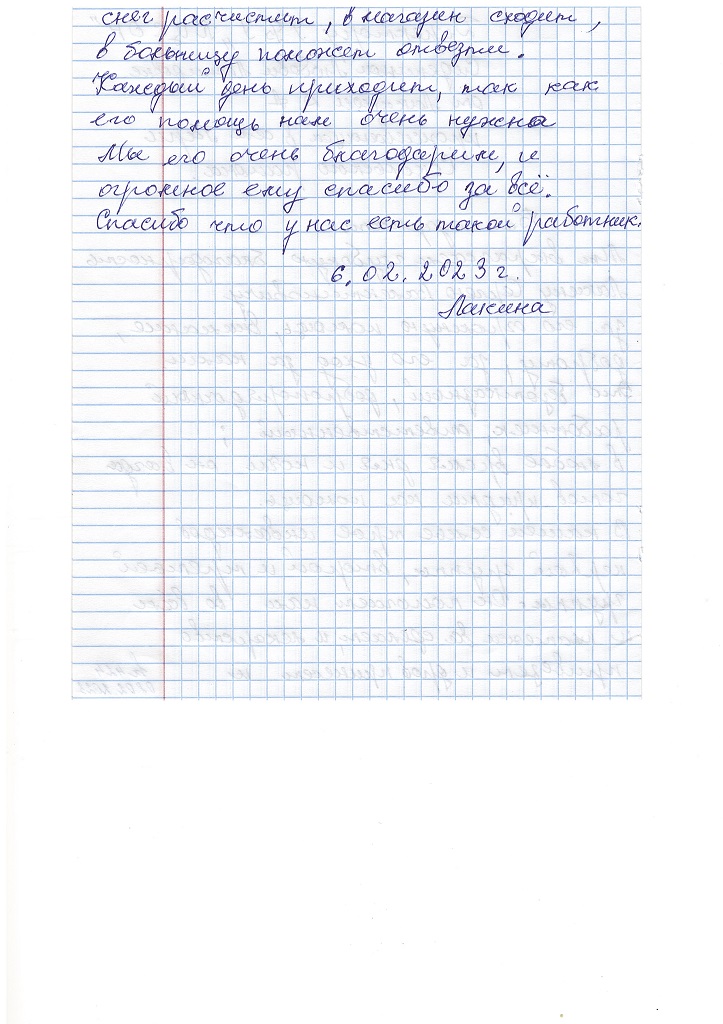 снег расчистит, в магазин сходит,
в больницу поможет отвезти.
Каждый день приходит, так как
его помощь нам очень нужна
Мы его очень благодарим, и
огромное ему спасибо за всё.
Спасибо что у нас есть такой работник.
6.02.2023 г.
Лакина